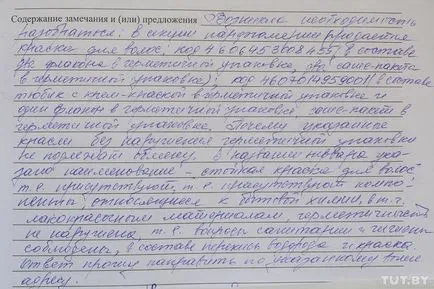 Содержание замечания и (или) предложения Возникла необходимость
разобраться: в секции парфюмерии продается
краска для волос; код 4606453608455 (в составе
два флакона в герметичной упаковке, два саше-пакета
в герметичной упаковке); код 4607014959001 в составе
тюбик с крем-краской в герметичной упаковке и
один флакон в герметичной упаковке, саше-пакет в
герметичной упаковке. Почему указанные
краски без нарушения герметичной упаковки
не подлежат обмену. В названии товара ука-
зано наименование - стойкая краска для волос,
т.е. присутствуют, т.е. присутствуют компо-
ненты, относящиеся к бытовой химии, в т.ч.
лакокрасочным материалам, герметичность
не нарушена, т.е. вопросы санитарии и гигиены
соблюдены, в составе перекись водорода и краска.
Ответ прошу направить по указанному выше
адресу.
TUT.BY